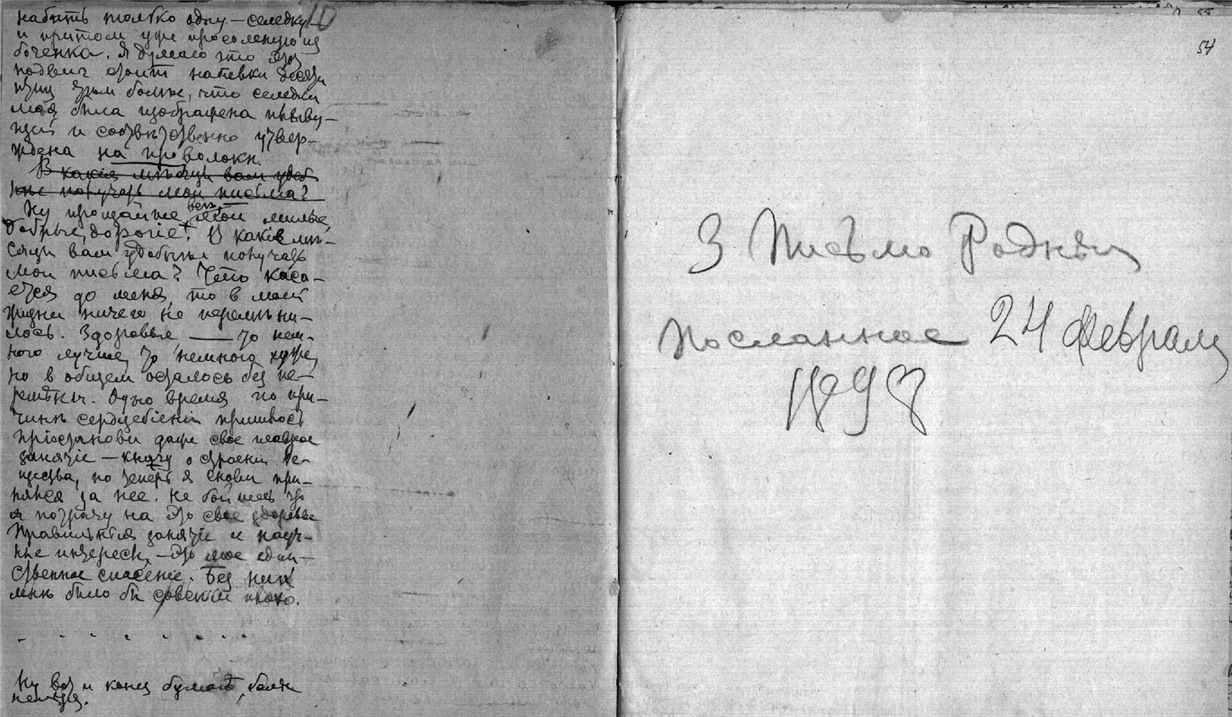 10
набить только одну — селедку —
и притом уже просоленую из
боченка. Я думаю что этот
подвиг стоит набивки десяти
птиц тѣм болѣе, что селедка
моя была изображена плыву-
щей и соотвѣтственно утвер-
ждена на проволокѣ.
В какiя мѣсяцы вам удоб
нѣе получать мои письма?
Ну прощайте всѣ, мои милые,
добрые, дорогiе! В какiе мѣ-
сяцы вам удобнѣе получать
мои письма? Что каса-
ется до меня, то в моей
жизни ничего не перемѣни-
лось. Здоровье — то нем-
ного лучше, то немного хуже,
но в общем осталось без пе-
ремѣны. Одно время по при-
чинѣ сердцебiенiй пришлось
прiостановить даже свое главное
занятiе — книгу о строенiи ве-
щества, но теперь я снова при-
нялся за нее. Не бойтесь что
я потрачу на это свое здоровье
Правильныя занятiя и науч-
ные интересы, — это мое един-
ственное спасенiе. Без них
мнѣ было бы совсѣм плохо.
- - - - - - - -
Ну вот и конец бумагѣ, болѣе
нельзя.
54
3 Письмо Родным
посланное 24 февраля
1898